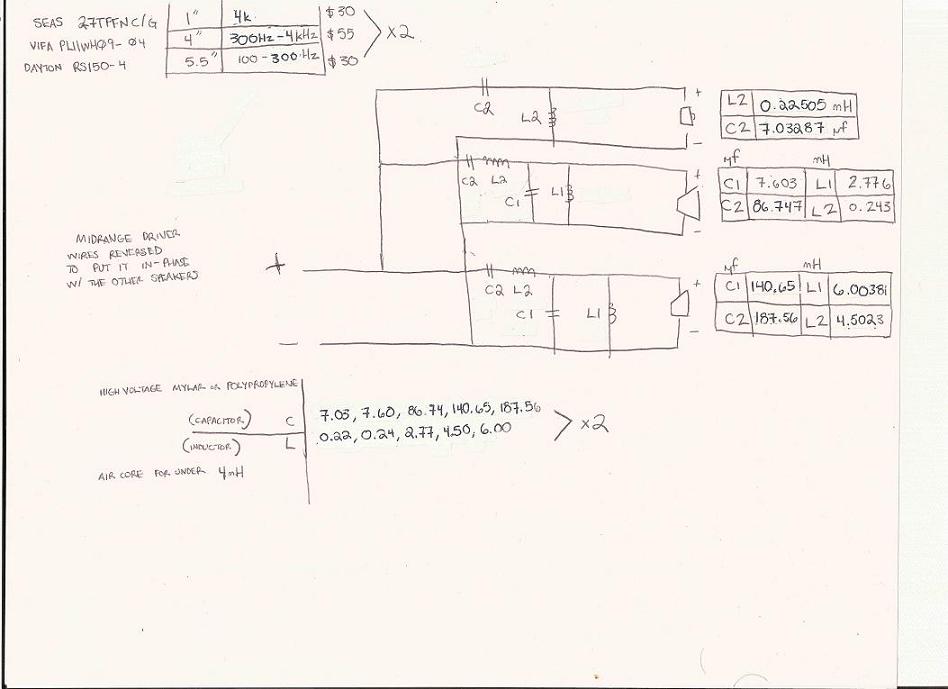 SEAS 27TFFNC/G 1" 4k $30
VIFA PL11WHØ9-Ø4 4" 300Hz-4kHz $55 > x2
DAYTON RS150-4 5.5" 100-300Hz $30
C2 L2 + -
L2 0.22505 mH
C2 7.03287 µf
C2 L2 C1 L1 + -
µf mH
C1 7.603 L1 2.776
C2 86.747 L2 0.243
MIDRANGE DRIVER
WIRES REVERSED
TO PUT IT IN-PHASE
W/ THE OTHER SPEAKERS
+
-
C2 L2 C1 L1 + -
µf mH
C1 140.65 L1 6.00381
C2 187.56 L2 4.5023
HIGH VOLTAGE MYLAR OR POLYPROPYLENE
(CAPACITOR) C 7.03, 7.60, 86.74, 140.65, 187.56
(INDUCTOR) L 0.22, 0.24, 2.77, 4.50, 6.00 > x2
AIR CORE FOR UNDER 4mH